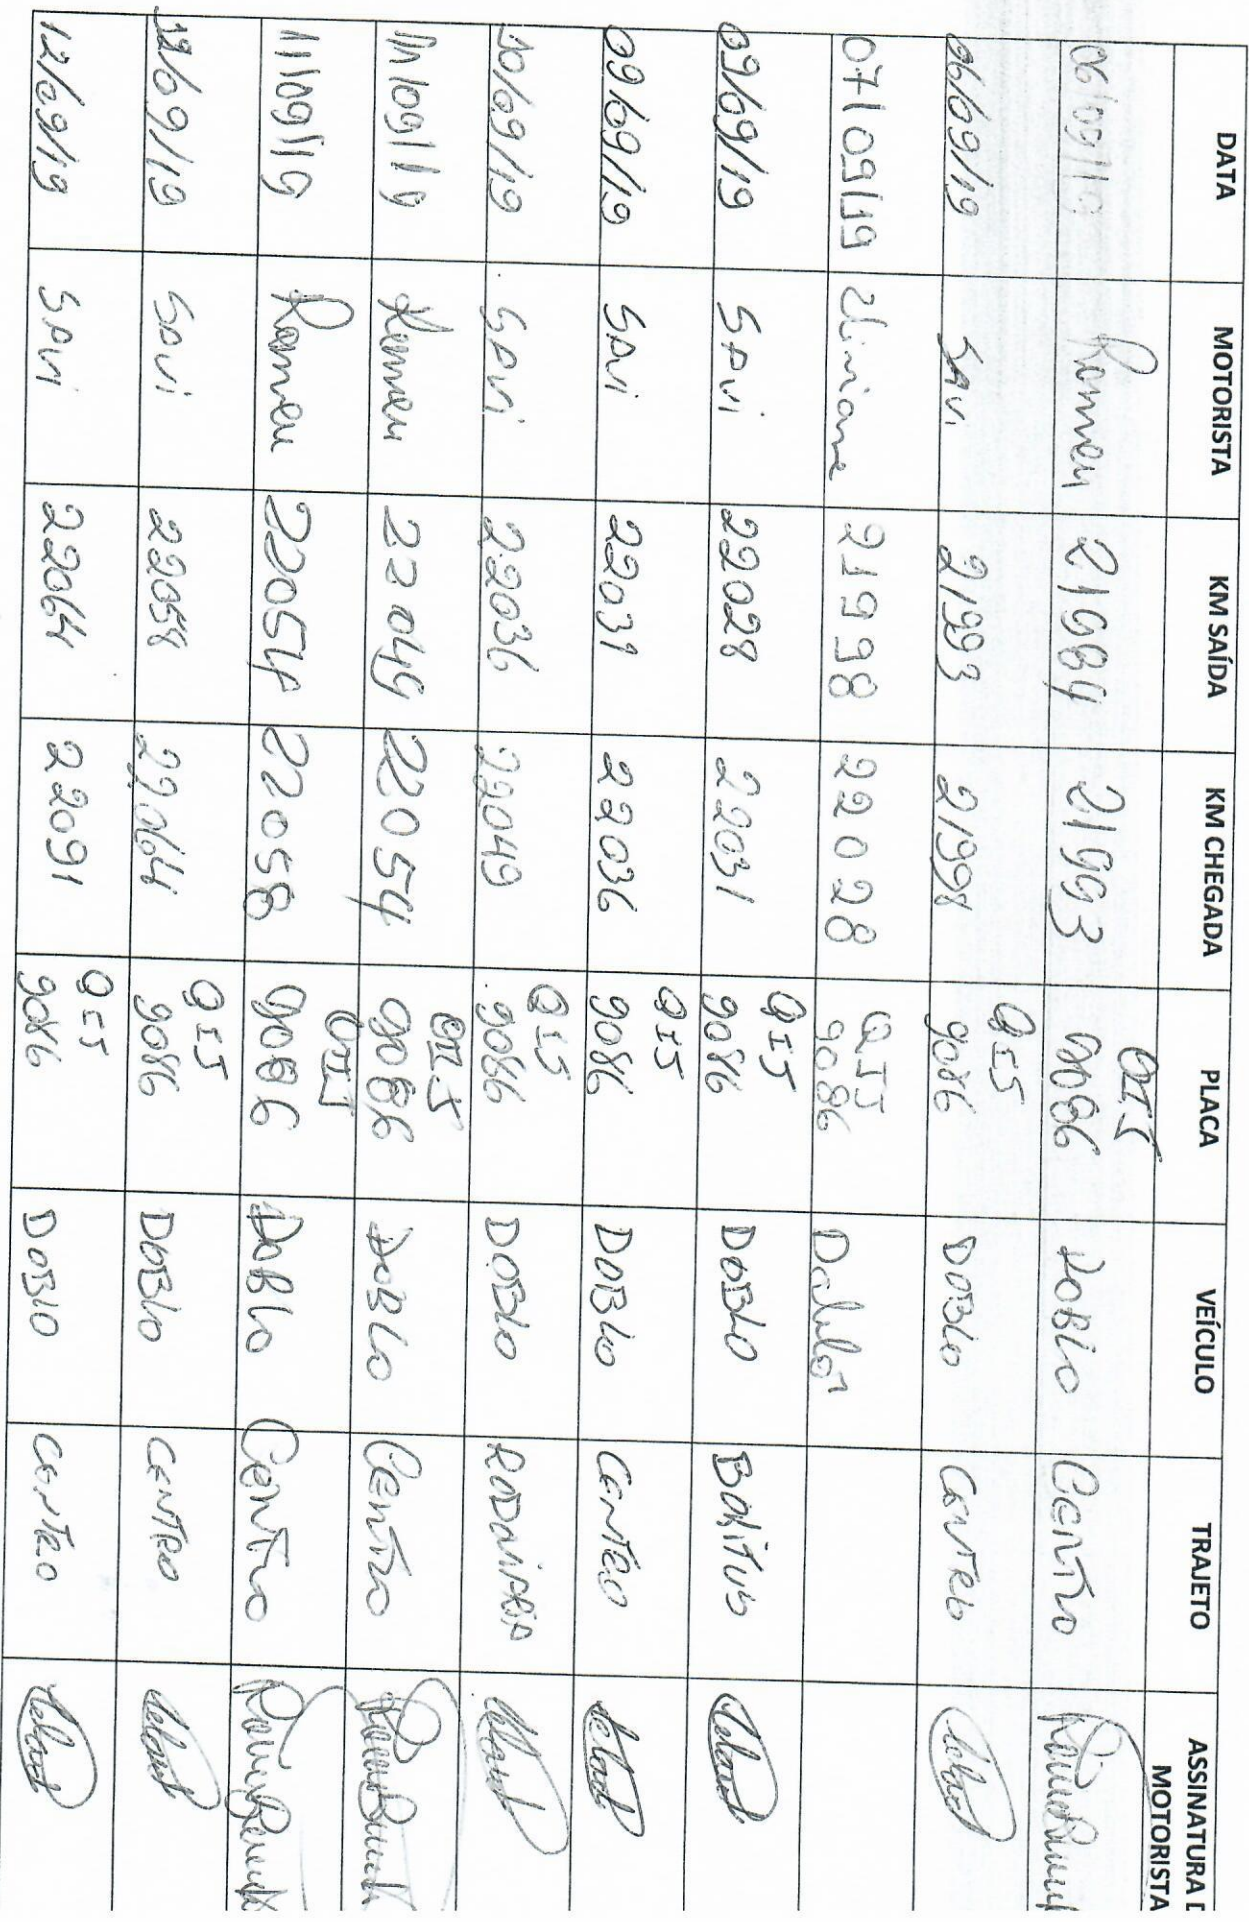 DATA MOTORISTA KM SAÍDA KM CHEGADA PLACA VEÍCULO TRAJETO ASSINATURA D
MOTORISTA
06/09/19 Romeu 21984 21993 QIJ 9086 DOBLO CENTRO
06/09/19 SAVI 21993 21998 QIJ 9086 DOBLO CENTRO
07/09/19 21998 22028 QIJ 9086
09/09/19 SAVI 22028 22031 QIJ 9086 DOBLO
09/09/19 SAVI 22031 22036 QIJ 9086 DOBLO CENTRO
10/09/19 SAVI 22036 22049 QIJ 9086 DOBLO
11/09/19 Romeu 22049 22054 QIJ 9086 DOBLO CENTRO
11/09/19 Romeu 22054 22058 QIJ 9086 DOBLO CENTRO
12/09/19 SAVI 22058 22064 QIJ 9086 DOBLO CENTRO
12/09/19 SAVI 22064 22091 QIJ 9086 DOBLO CENTRO